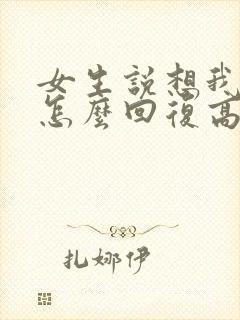 女生説想我
怎麼回復高
扎娜伊